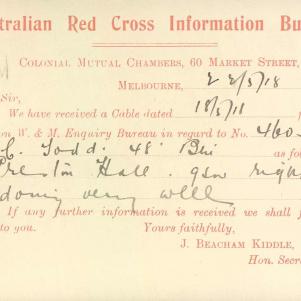 tralian Red Cross Information Bu
Colonial Mutual Chambers, 60 Market Street,
Melbourne, 22/5/18
Sir,
We have received a Cable dated 18/5/18
on W. & M. Enquiry Bureau in regard to No. 460
C. Todd. 48' Bn as fo
Preston Hall. gsw righ
doing very well
If any further information is received we shall f
to you. Yours faithfully,
J. Beacham Kiddle,
Hon. Secre